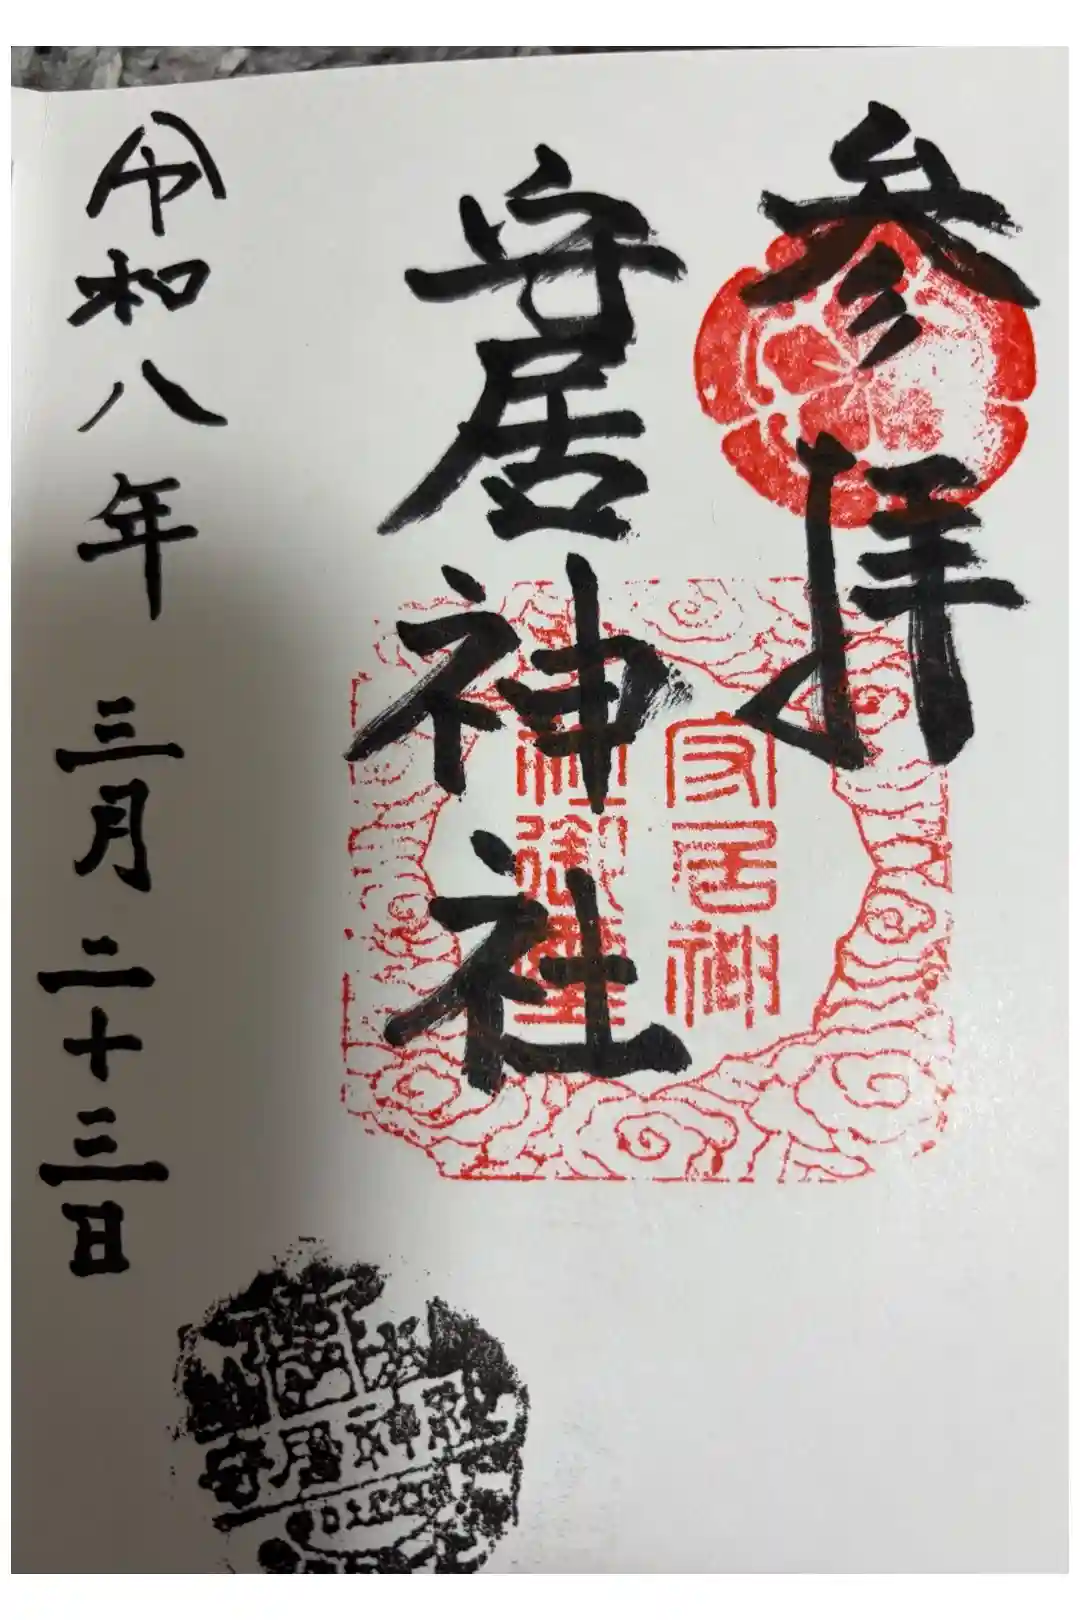 参拝
安居神社
安居神
社御璽
令和八年 三月二十三日
安居神社